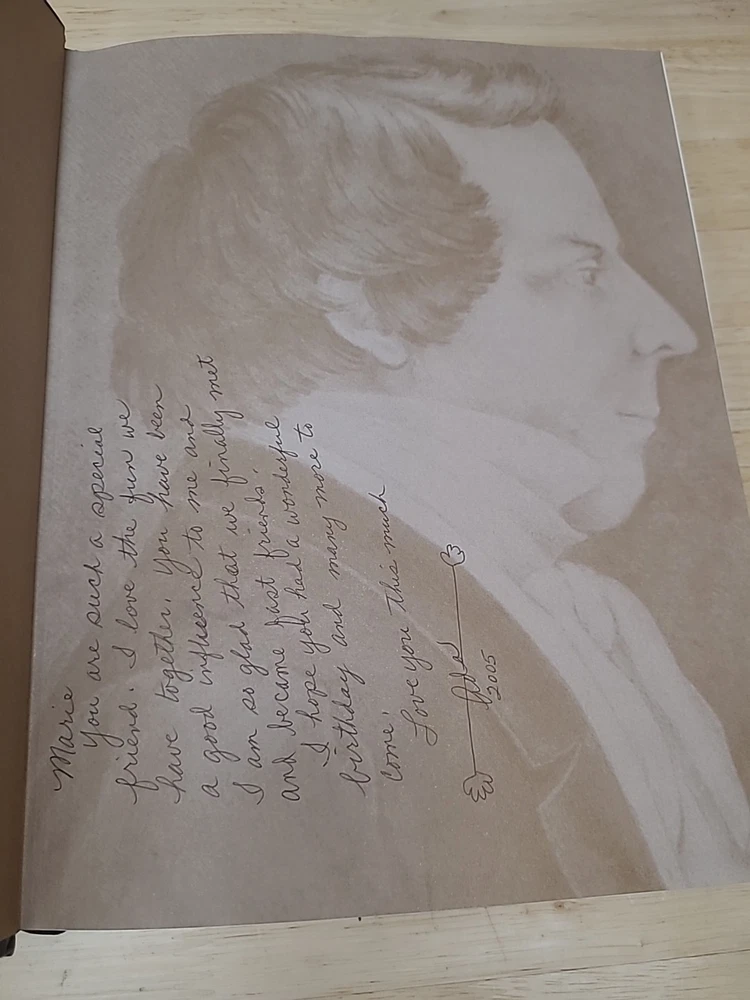 Marie
You are such a special
friend. I love the fun we
have together. You have been
a good influence to me and
I am so glad that we finally met
and became fast friends.
I hope you had a wonderful
birthday and many more to
come.
Love you this much
Ada
2005